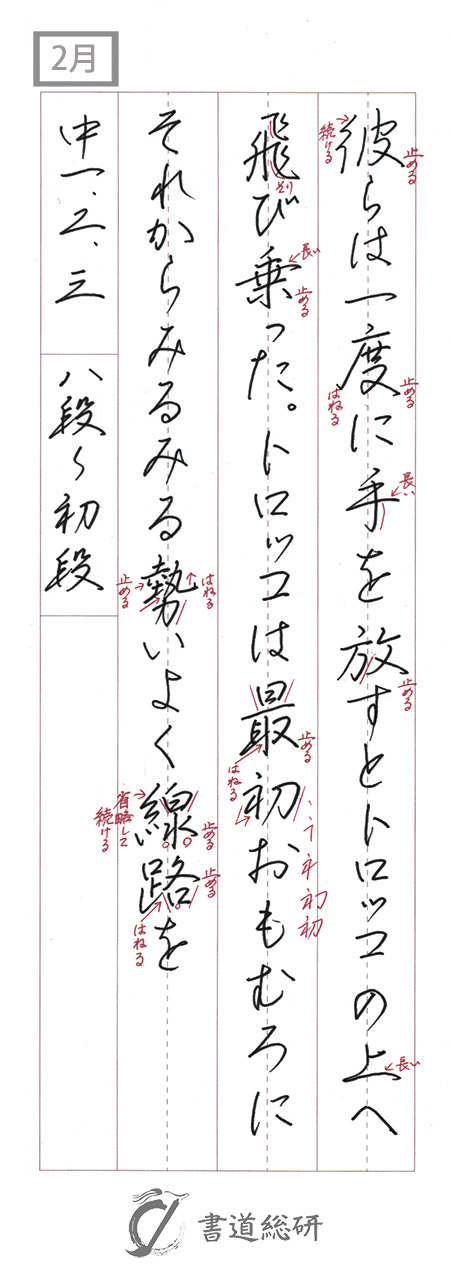 2月
彼らは一度に手を放すとトロッコの上へ
続ける
止める
止める
はねる
長い
止める
長い
飛び乗った。トロッコは最初おもむろに
長い
止める
止める
はねる
初
それからみるみる勢いよく線路を
止める
はねる
省略して
続ける
止める
止める
はねる
中一、二、三
八段〜初段
書道総研